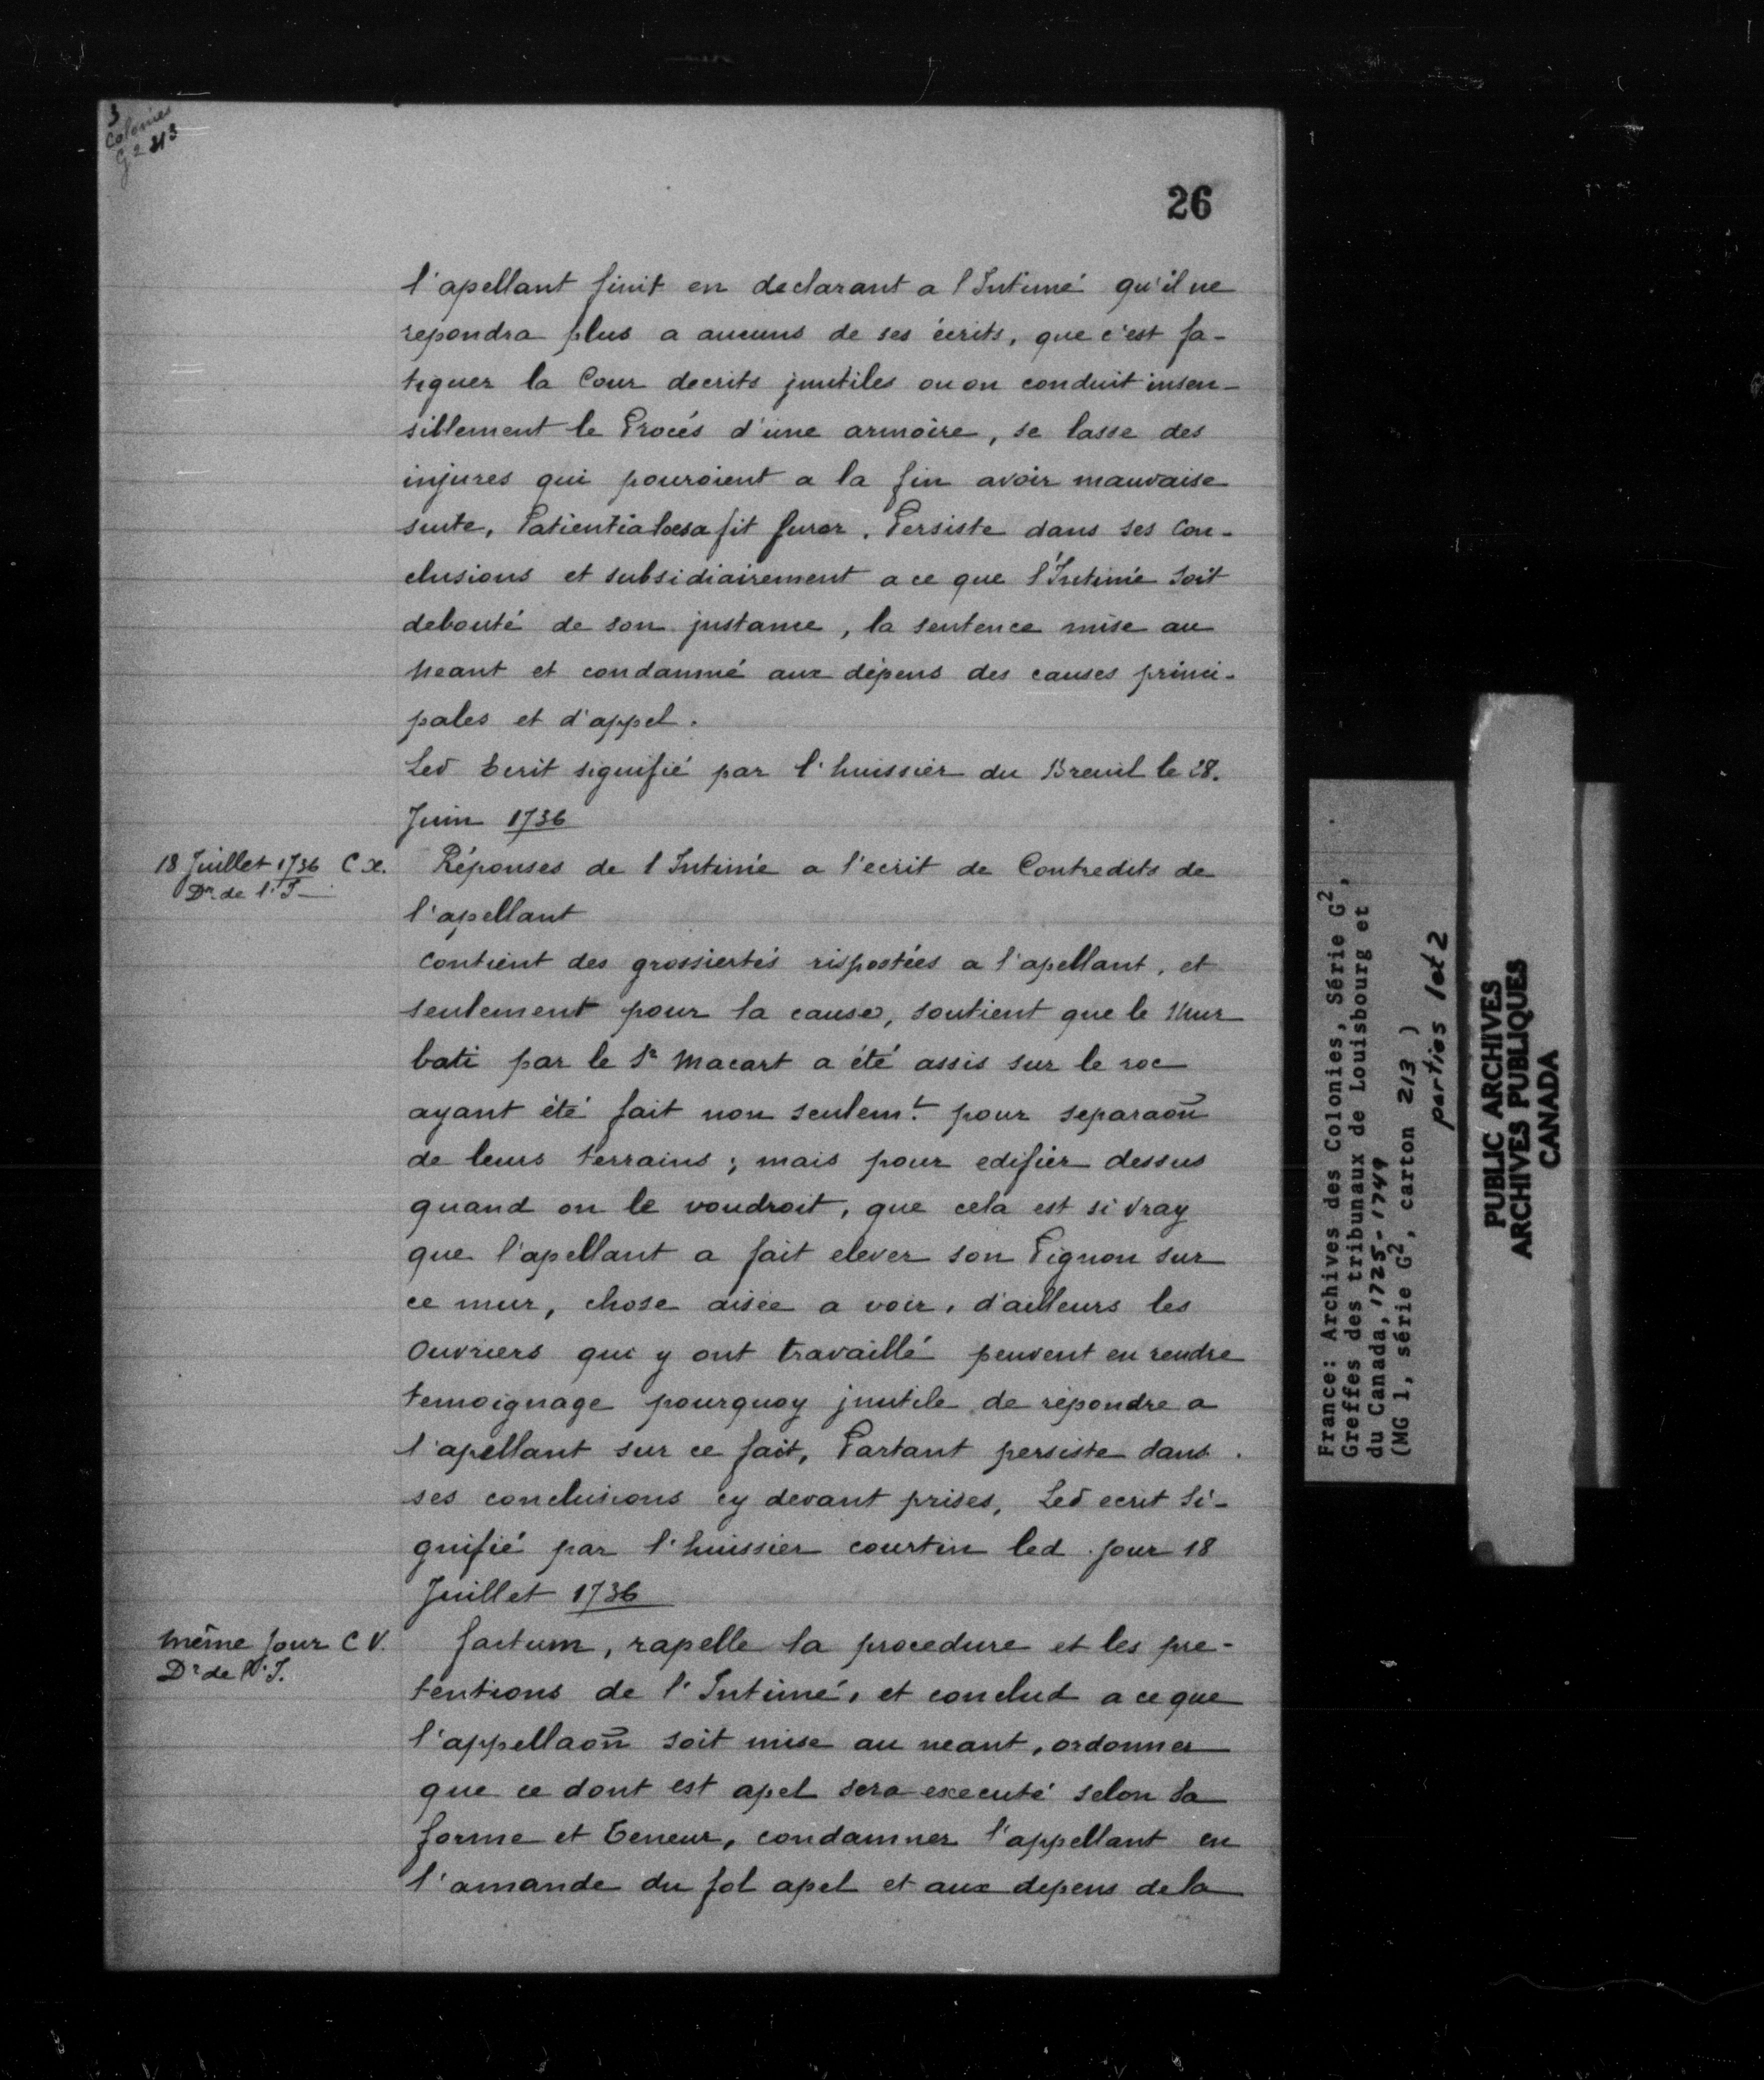 3
Colonies
G2 213
26
l'apellant finit en declarant a l'Intimé qu'il ne
repondra plus a aucuns de ses écrits, que c'est fa-
tiguer la Cour decrits jnutiles ou on conduit insen-
sillement le Procés d'une armoire, se lasse des
injures qui pouroient a la fin avoir mauvaise
suite, Patientia loesa fit furor. Persiste dans ses con-
clusions et subsidiairement a ce que l'Intimé soit
debouté de son jnstance, la sentence mise au
neant et condamné aux dépens des causes princi-
pales et d'appel.
Led Ecrit signifié par l'huissier du Breuil le 28.
Juin 1736
18 Juillet 1736 C X.
Dn de l'I
Réponses de l Intimé a l'ecrit de Contredits de
l'apellant
contient des grossiertés rispostées a l'apellant, et
seulement pour la cause, soutient que le Mur
bati par le Sr Macart a été assis sur le roc
ayant été fait non seulemt pour separaon̄
de leurs terrains; mais pour edifier dessus
quand on le voudroit, que cela est si vray
que l'apellant a fait elever son Pignon sur
ce mur, chose aisée a voir, d'ailleurs les
Ouvriers qui y ont travaillé peuvent en rendre
temoignage pourquoy jnutile de répondre a
l'apellant sur ce fait, Partant persiste dans
ses conclusions cy devant prises, Led ecrit Si-
gnifié par l'huissier courtin led. jour 18
Juillet 1736
même jour C V.
Dr de l'I.
factum, rapelle la procedure et les pre-
tentions de l'Intimé, et conclud a ce que
l'appellaon̄ soit mise au neant, ordonner
que ce dont est apel sera executé selon sa
forme et teneur, condamner l'appellant en
l'amande du fol apel et aux depens de la
France: Archives des Colonies, Série G2,
Greffes des tribunaux de Louisbourg et
du Canada, 1725-1749
(MG 1, série G2, carton 213 )
parties 1 et 2
PUBLIC ARCHIVES
ARCHIVES PUBLIQUES
CANADA